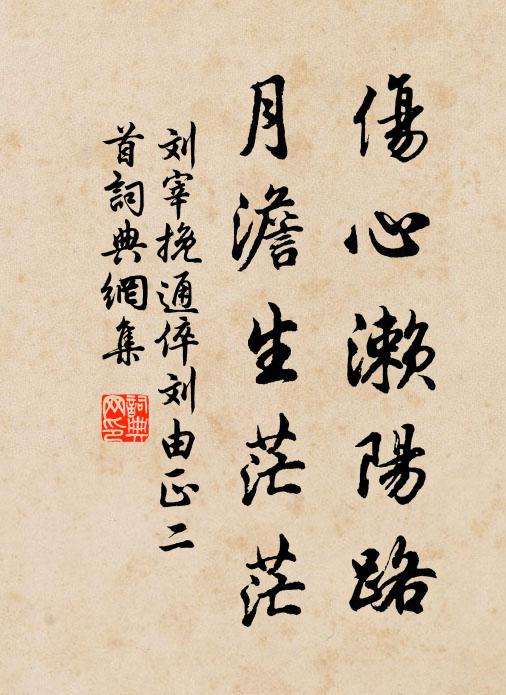 傷心瀨陽路
月澹生茫茫
刘宰挽通倅刘由正二
首詞典網集
詞典网印